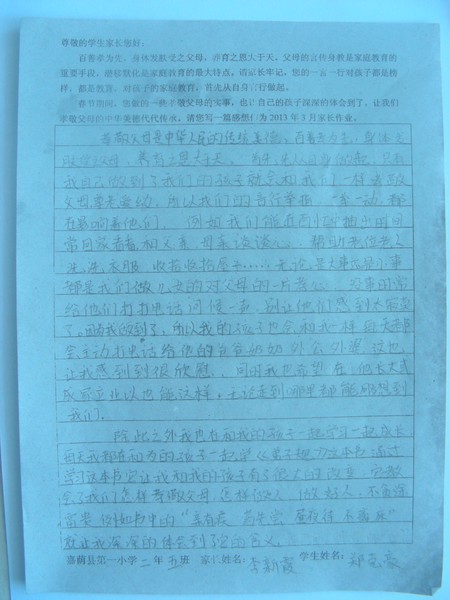 尊敬的学生家长您好:
百善孝为先,身体发肤受之父母,养育之恩大于天。父母的言传身教是家庭教育的
重要手段,潜移默化是家庭教育的最大特点,请家长牢记,您的一言一行对孩子都是榜
样,都是教育,对孩子的家庭教育,首先从自身言行做起。
春节期间,您做的一些孝敬父母的实事,也让自己的孩子深深的体会到了,让我们
孝敬父母的中华美德代代传承。请您写一篇感想作为2013年3月家长作业。
孝敬父母是中华人民的传统美德,百善孝为先,身体发
肤受父母,养育之恩大于天。
我自己做到了我们的孩子就会和我们一样去孝敬
父母尊老爱幼,所以我们的言行举指,一举一动,都
在影响着他们。例如我们能在百忙中抽出时间
常回家看看和父亲、母亲谈谈心,帮助老人
洗洗衣服,收拾收拾屋子……无论是大事还是小事
都是我们做儿女的对父母的一片孝心,没事时常
给他们打打电话问候一声,别让他们感到太寂寞
了。因为我做到了,所以我的孩子也会和我一样每天都
会主动打电话给他的爷爷奶奶外公外婆,这也
让我感到到很欣慰。同时我也希望在他长大
成家立业以也能这样,无论走到哪里都能够想到
我们。
除此之外我也在和我的孩子一起学习一起成长
每天我都在和我的孩子一起学《弟子规》这本书通过
学习这本书它让我和我的孩子有了很大的改变,它教
会了我们怎样孝敬父母,怎样做人,做好人,
例如书中的"亲有疾 药先尝 昼夜侍 不离床"
就让我深深的体会到了它的含义。
嘉荫县第一小学二年五班 家长姓名:李新霞 学生姓名:郑